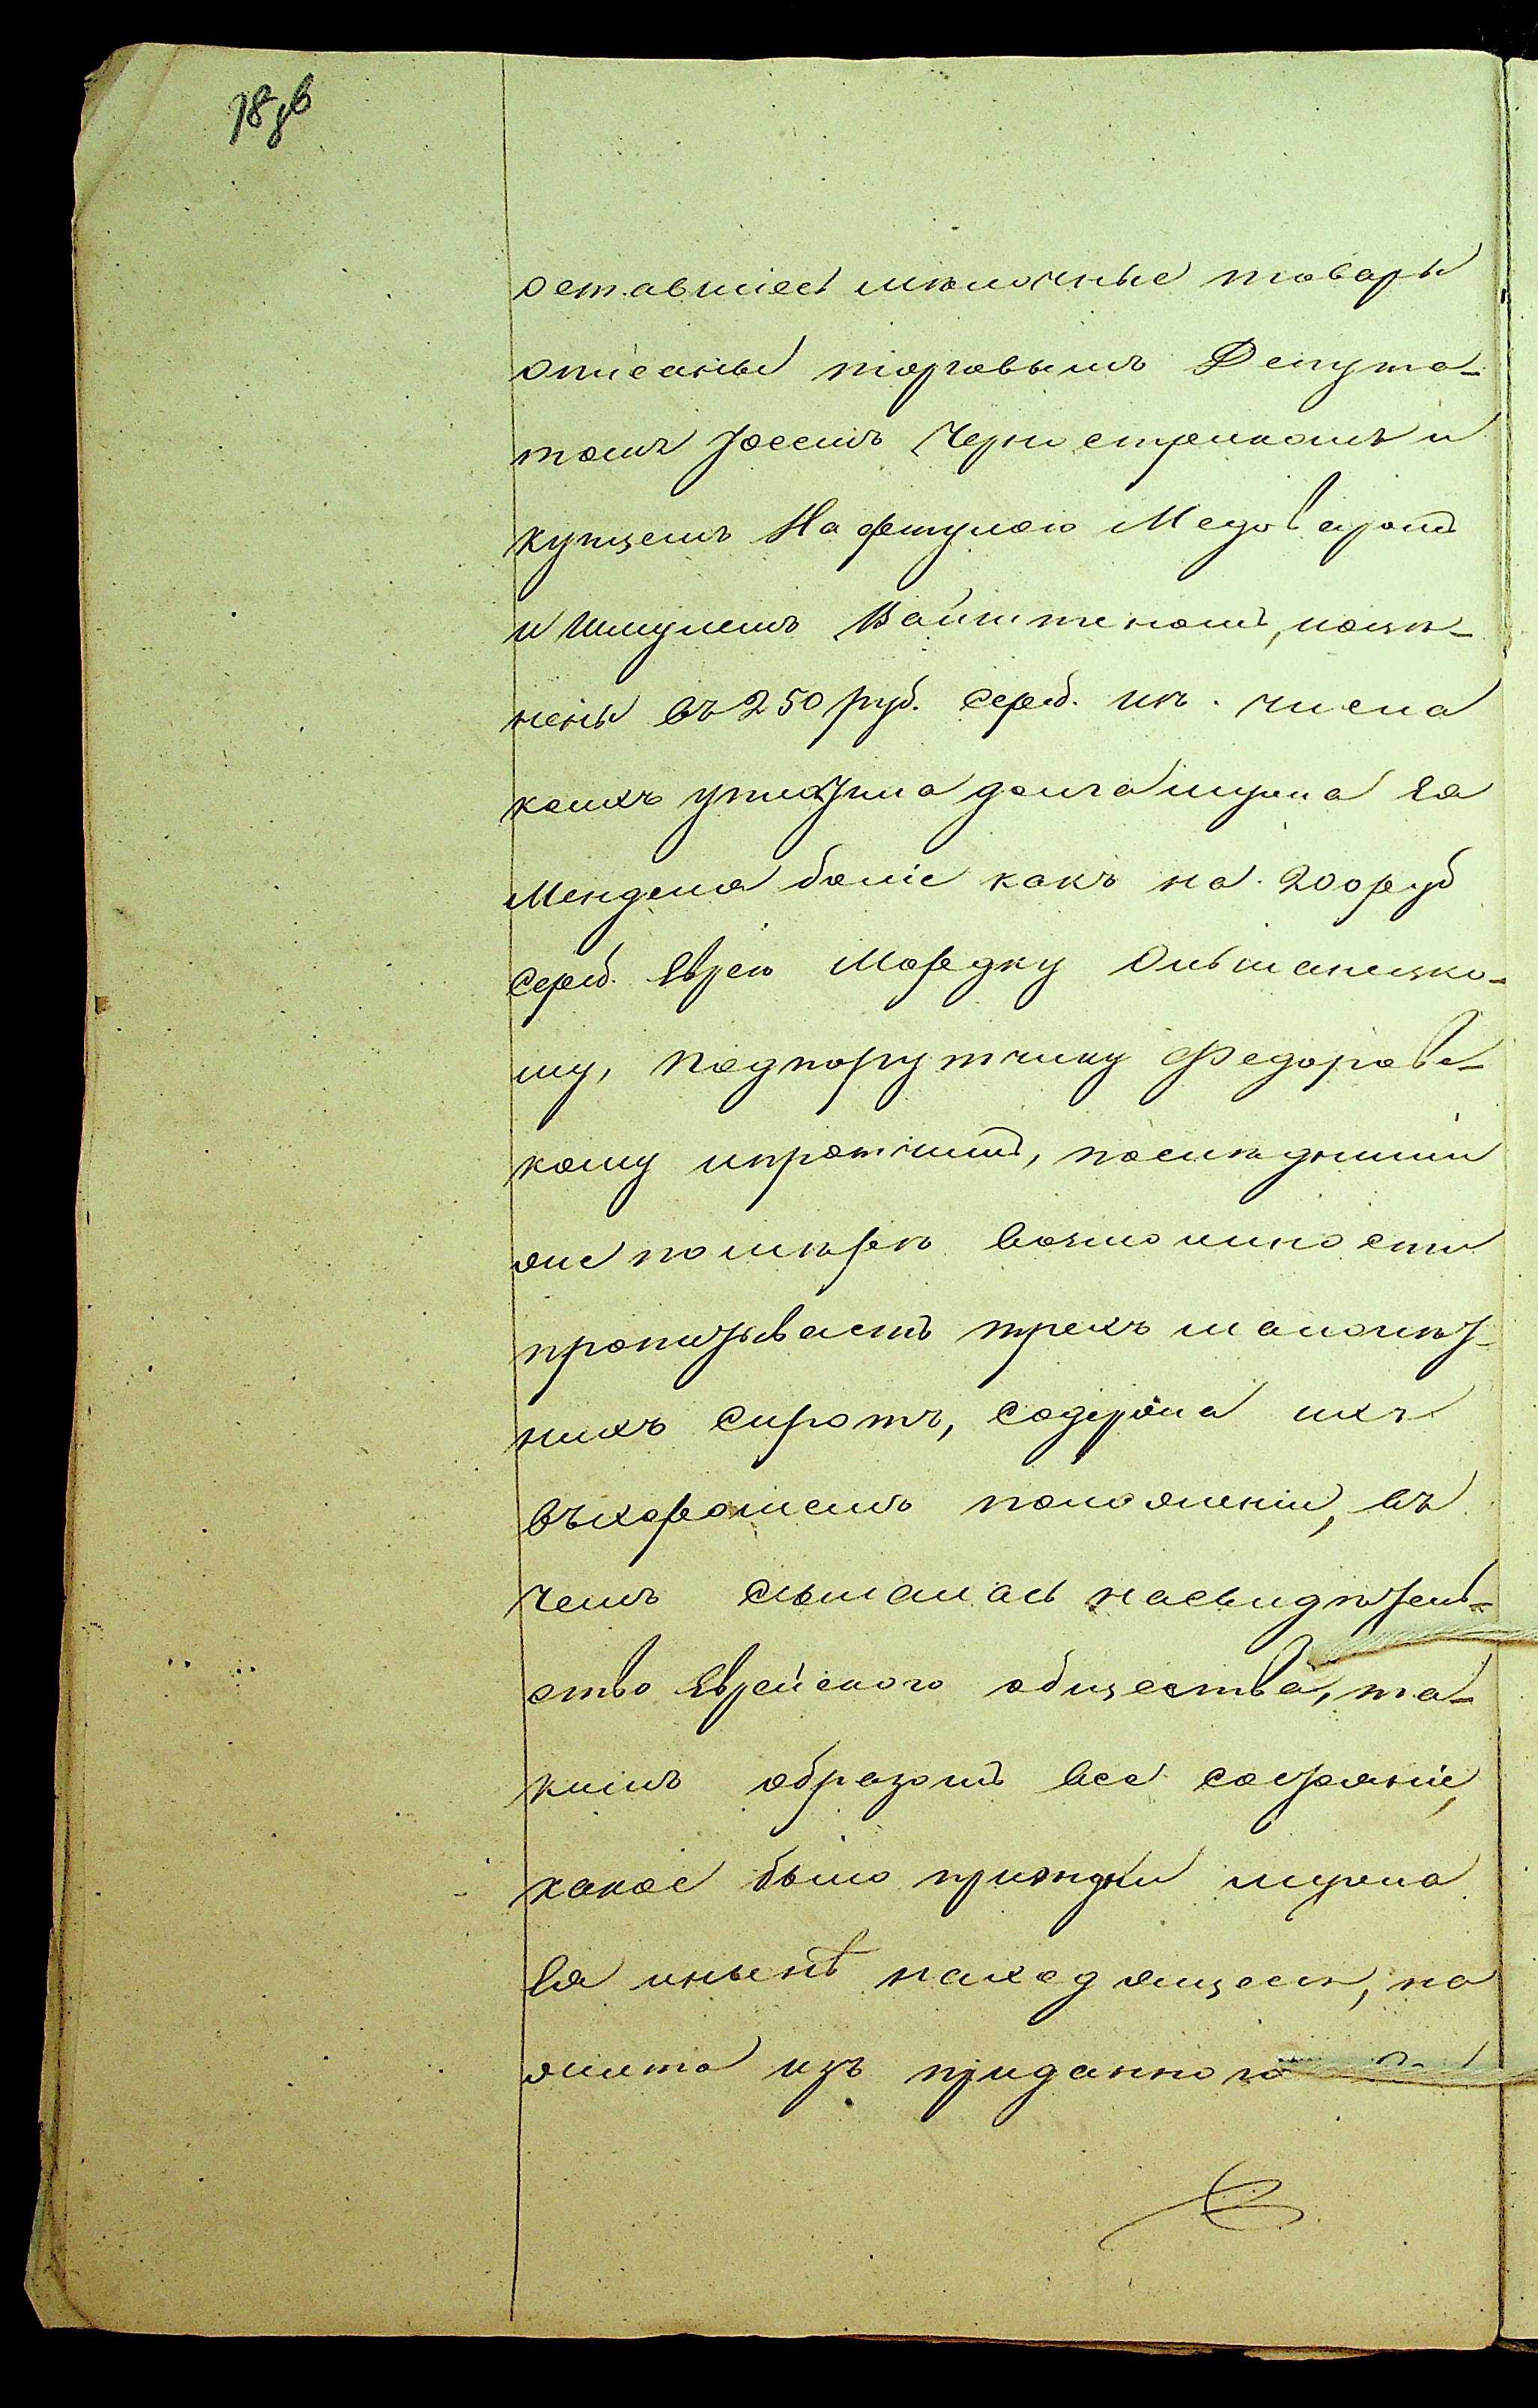 78 об
оставшіеся мѣлочные товары
описаны торговымъ Депута-
томъ Іосемъ Черностринкомъ и
купцемъ Нафтулею Медовыромъ
и Шмулемъ Вайштеномъ, поцѣ-
нены въ 250 руб. сереб. изъ числа
коихъ уплатила долга мужа ея
Менделя боліе какъ на 200 руб
сереб. Еврею Мордку Ольшанецко-
му, Подпорутчику Федоровс-
кому и протчимъ, послѣдними
же по мѣрѣ возможности
пропитываетъ трехъ малолѣт-
нихъ сиротъ, содержа ихъ
въ хорошемъ положеніи, въ
чемъ ссылалась на свидѣтель-
ство Еврейского общества, та-
кимъ образомъ все состояніе,
какое было при жизни мужа
Ея и нынѣ находящееся, на
жито изъ приданного